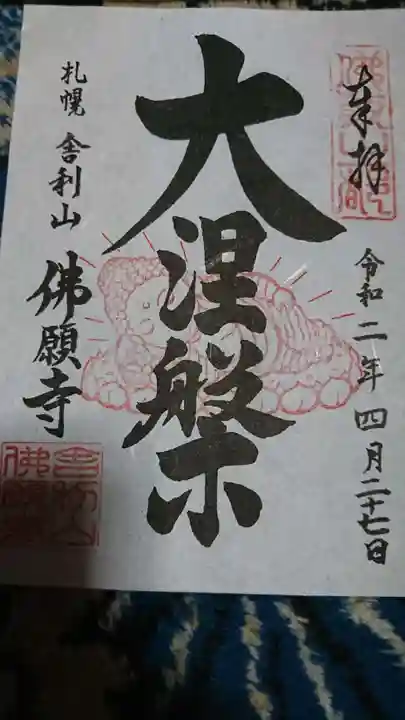 奉拝
令和二年四月二十七日
大涅槃
札幌 舎利山
佛願寺